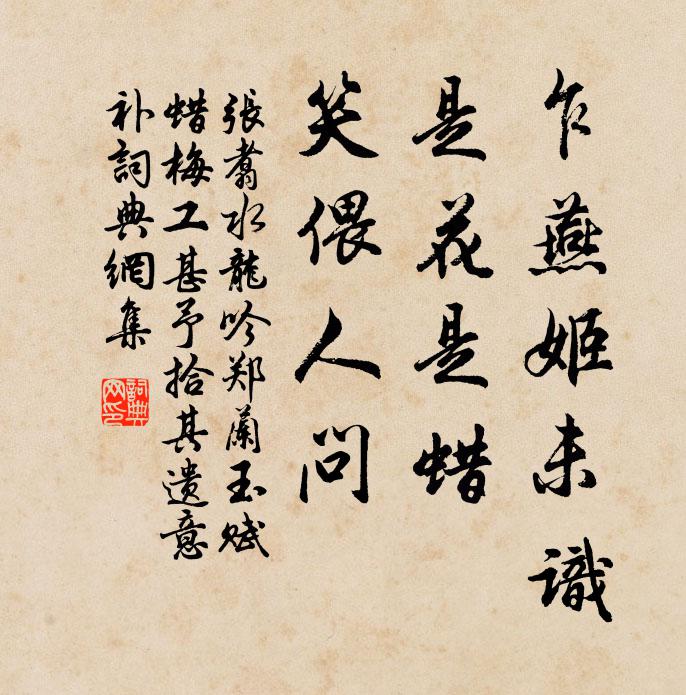 乍燕姬未識
是花是蜡
笑偎人问
張翥水龍吟郑蘭玉赋
蜡梅工甚予拾其遗意
补詞典網集
詞典网印